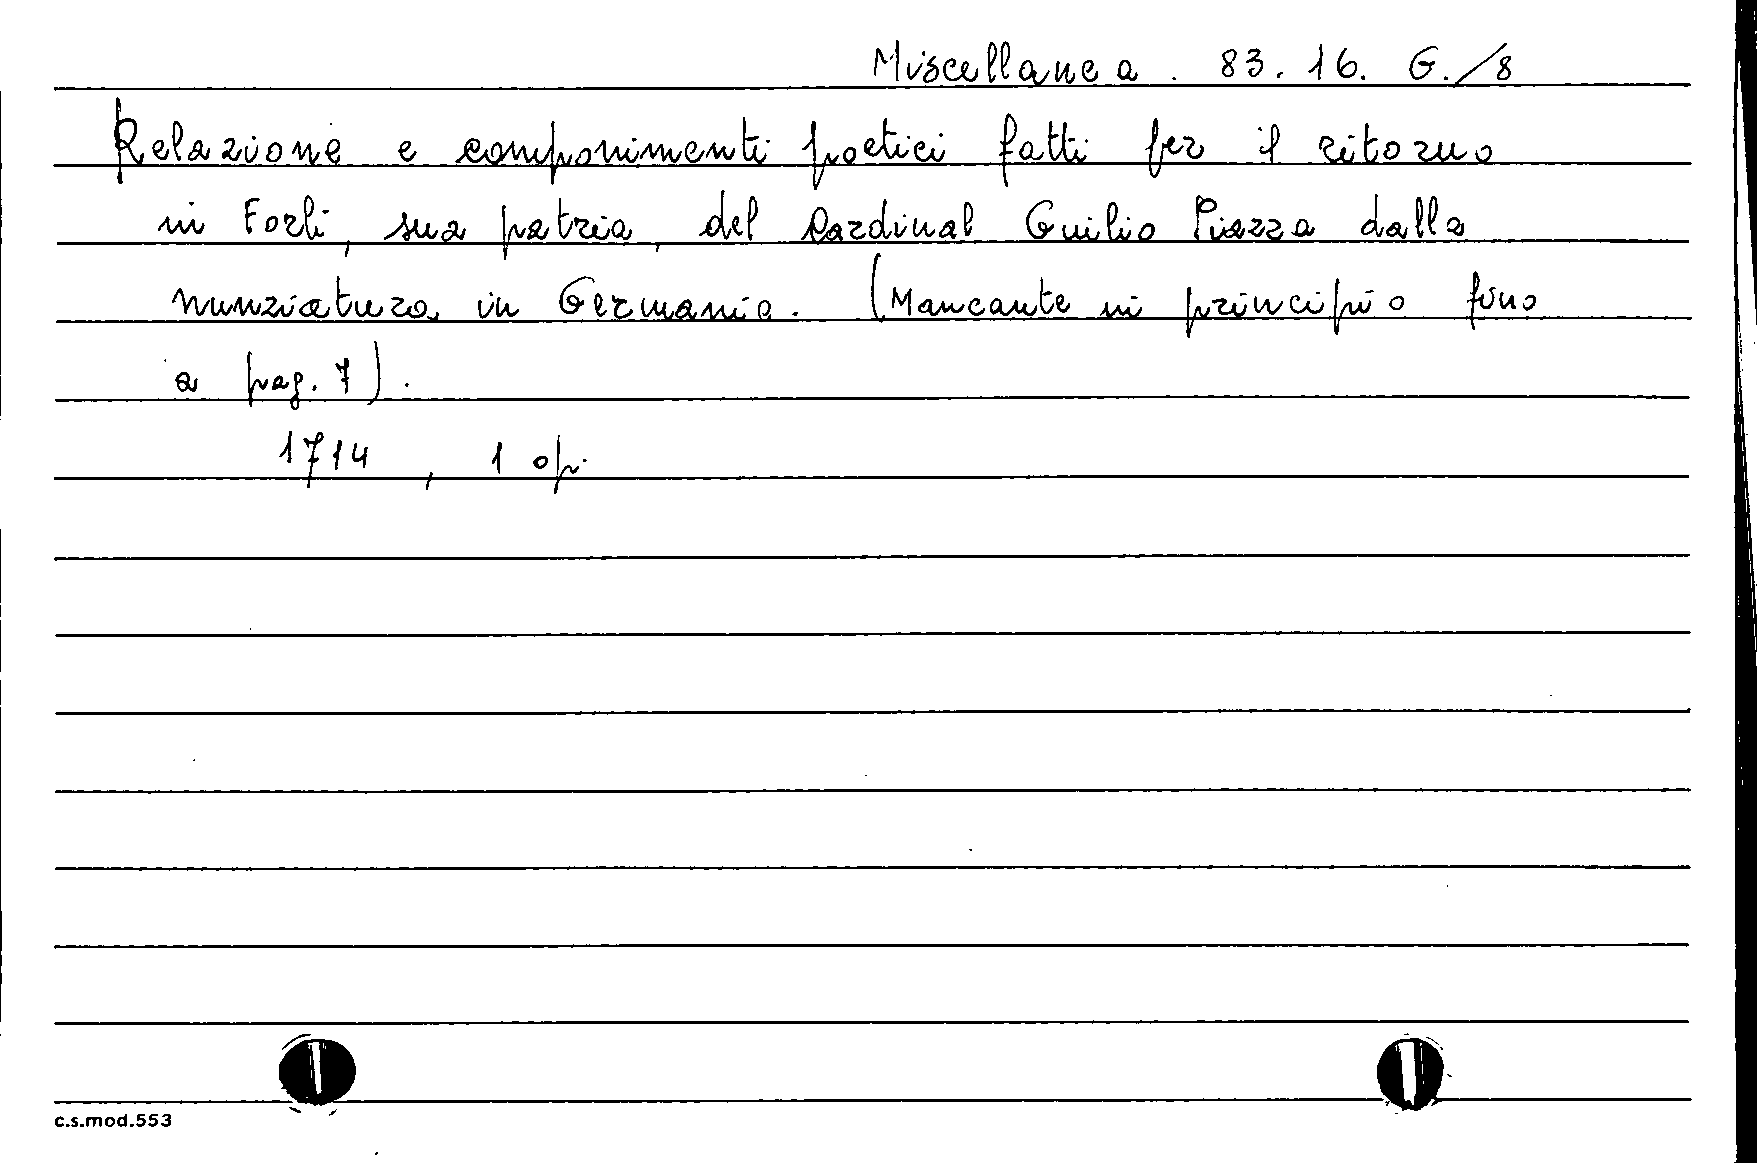 Miscellanea . 83. 16. G./8
Relazione e componimenti poetici fatti per il ritorno
in Forlì, sua patria, del Cardinal Guilio Piazza dalla
nunziatura in Germania. (Mancante in principio fino
a pag. 7).
1714 , 1 op.
c.s.mod.553